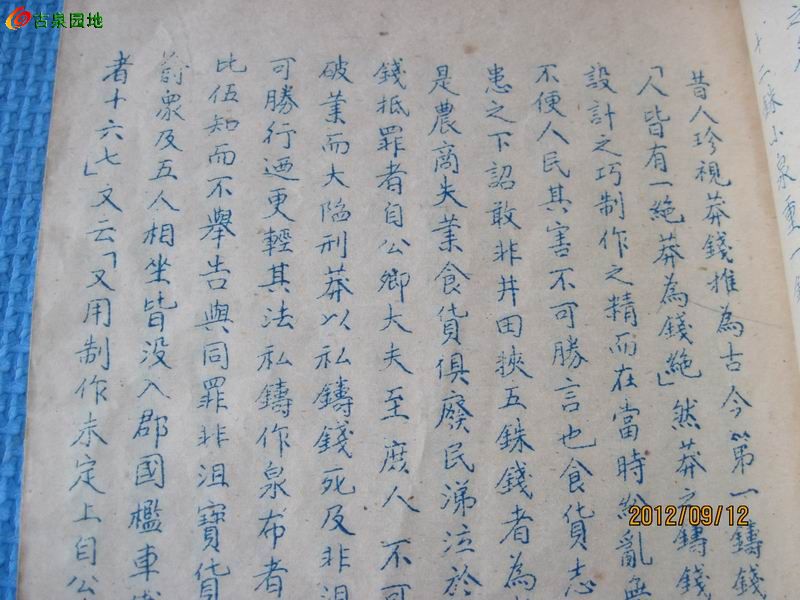 古泉园地
十二銖小泉重一
昔人珍視莽錢推為古今第一鑄錢
「人皆有一絕莽為錢絕」然莽之鑄錢
設計之巧制作之精而在當時紛亂無
不便人民其害不可勝言也食貨志
患之下詔敢非井田挾五銖錢者為
是農商失業食貨俱廢民涕泣於
錢抵罪者自公卿大夫至庶人不可
破業而大陷刑莽以私鑄錢死及非沮
可勝行迺更輕其法私鑄作泉布者
比伍知而不舉告與同罪非沮寶貨
罰泉及五人相坐皆没入郡國檻車
者十六七」又云「又用制作未定上自公
2012/09/12